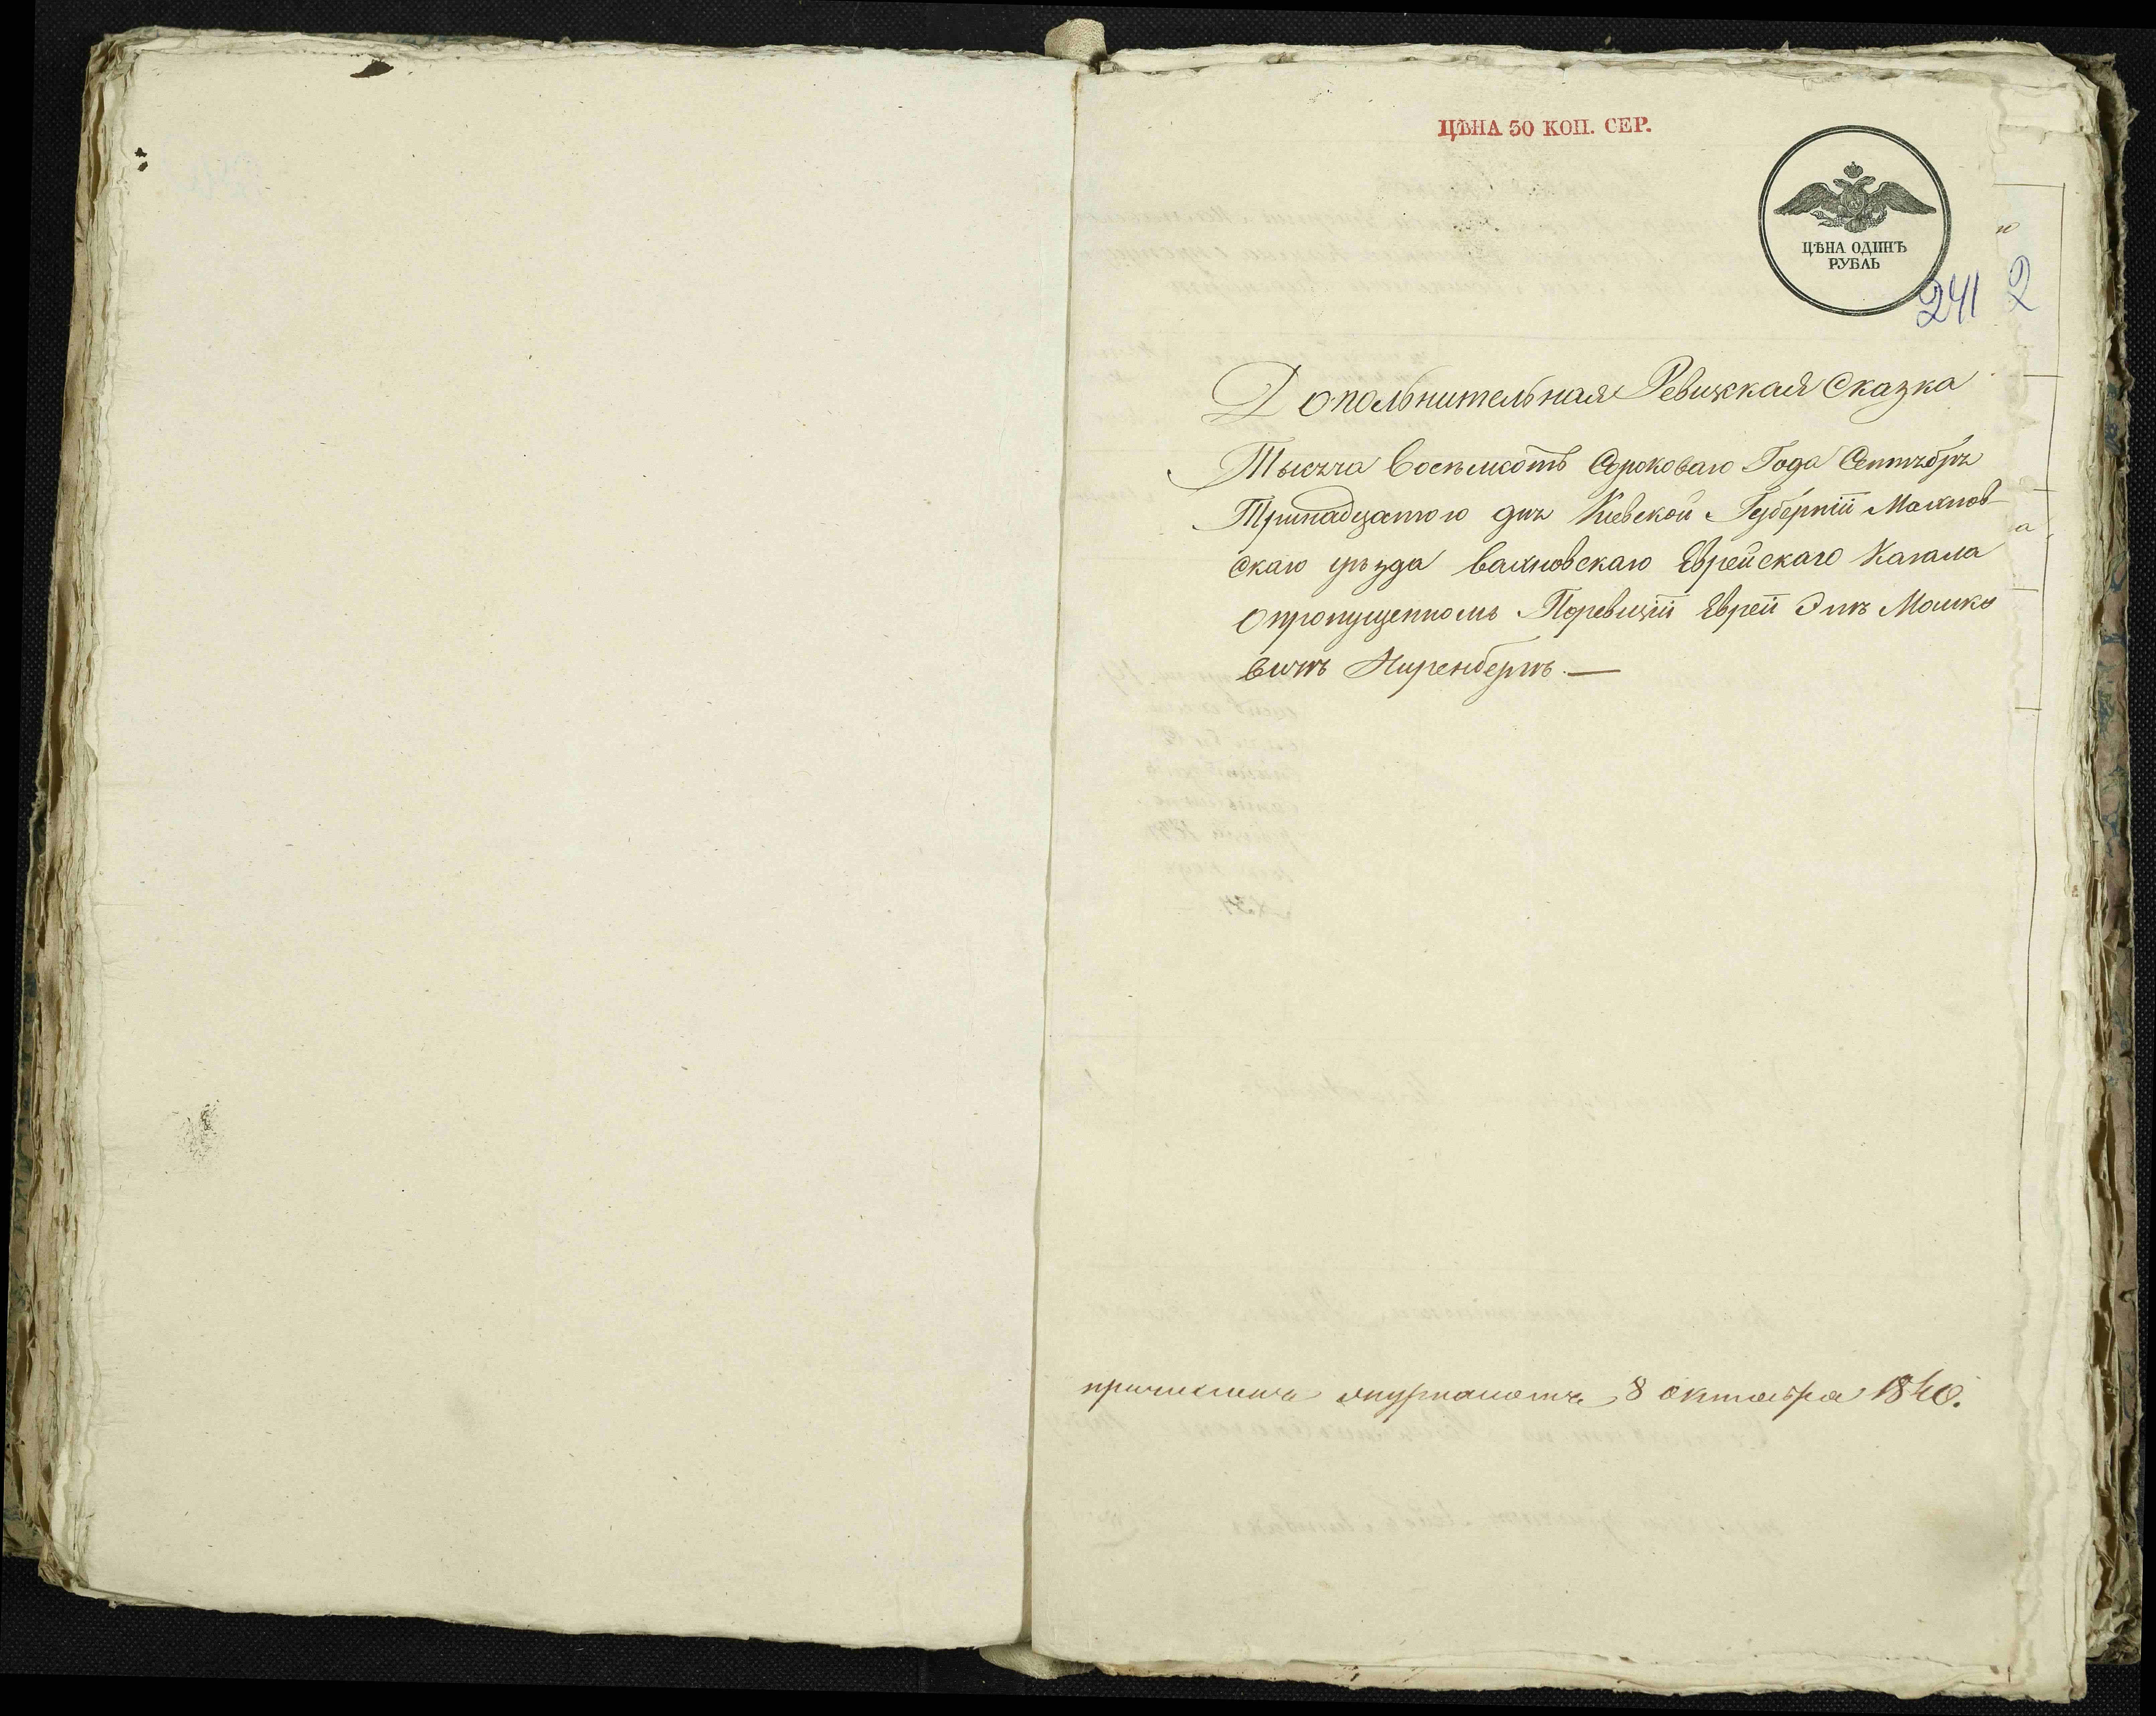 ЦѢНА 50 КОП. СЕР.
ЦѢНА ОДИНЪ
РУБЛЬ
241 2
Допольнительная Ревизская Сказка
Тысяча Восемьсотъ Сороковаго Года Септября
Тринадцатого дня Кіевской Губерніи Махнов-
скаго уѣзда Вахновскаго Еврейскаго Кагала
Опропущенномъ Поревизіи Еврей Эль Мошко
вичъ Ниренбергъ. —
8 октября 1840.